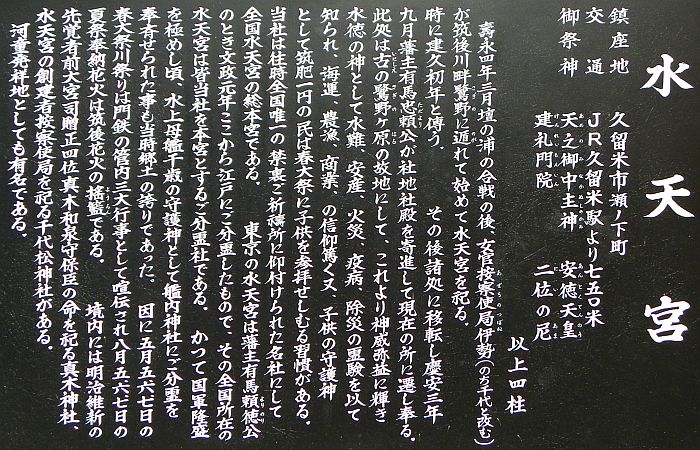 水天宮
鎮座地　久留米市瀬ノ下町
交通　ＪＲ久留米駅より七五〇米
御祭神　天之御中主神　安徳天皇
建礼門院　二位の尼
以上四柱
寿永四年三月壇の浦の合戦の後、女官按察使局伊勢（のち千代と改む）
が筑後川畔鷺野に遁れて始めて水天宮を祀る。
時に建久初年と傳う。　その後諸処に移転し慶安三年
九月藩主有馬忠頼公が社地社殿を寄進して現在の所に遷し奉る。
此処は古の鷺野ヶ原の故地にして、これより神威弥益に輝き
水徳の神として水難、安産、火災、疫病、除災の霊験を以て
知られ　海運、農漁、商業、の信仰篤く又、子供の守護神
として筑肥一円の民は春大祭に子供を参拝せしむる習慣がある。
当社は往時全国唯一の禁裏ご祈祷所に仰付けられた名社にして
全国水天宮の総本宮である。　東京の水天宮は藩主有馬頼徳公
のとき文政元年ここから江戸にご分霊したもので、その全国所在の
水天宮は皆当社を本宮とするご分霊社である。　かつて国軍隆盛
を極めし頃、水上母艦千歳の守護神として艦内神社にご分霊を
奉斎せられた事も当時郷土の誇りであった。　因に五月五六七日の
春大祭川祭りは門鉄の管内三大行事として喧伝され八月五六七日の
夏祭奉納花火は筑後花火の揺籃である。　境内には明治維新の
先覚者前大宮司贈正四位真木和泉守保臣の命を祀る真木神社、
水天宮の創建者按察使局を祀る千代松神社がある。
河童発祥地としても有名である。